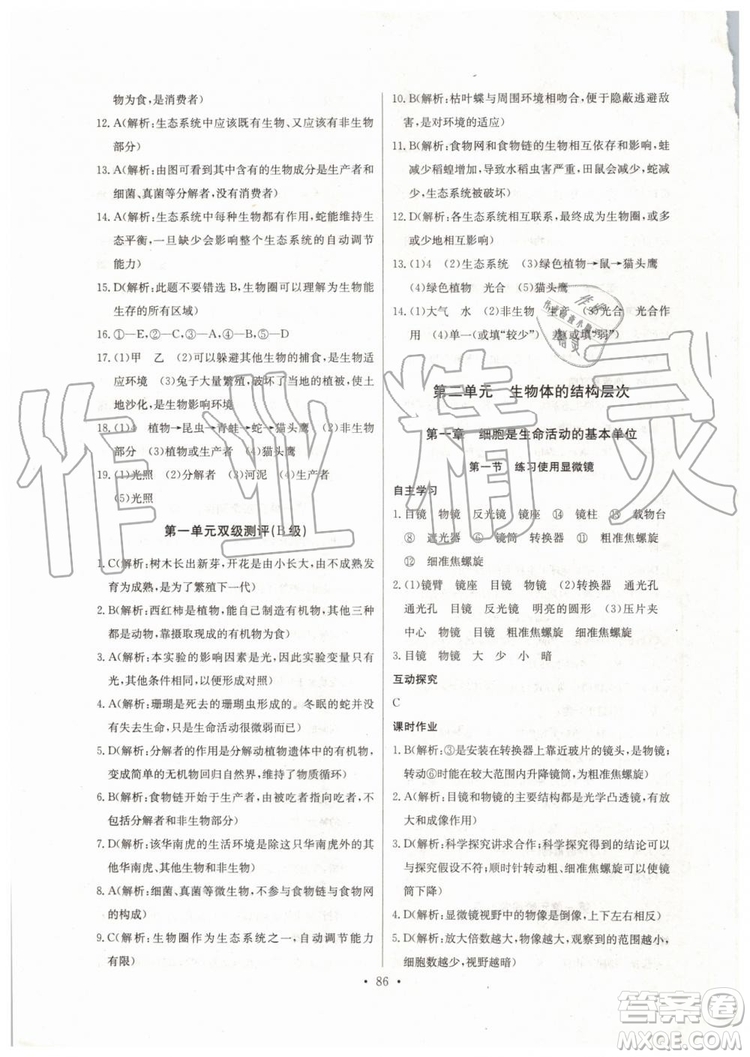 物为食,是消费者)
12. A(解析:生态系统中应该既有生物、又应该有非生物
部分)
13. A(解析:由图可看到其中含有的生物成分是生产者和
细菌、真菌等分解者,没有消费者)
14. A(解析:生态系统中每种生物都有作用,蛇能维持生
态平衡,一旦缺少会影响整个生态系统的自动调节
能力)
15. D(解析:此题不要误选 B,生物圈可以理解为生物能
生存的所有区域)
16. ①—E,②—A,③—C,④—B,⑤—D
17. (1)甲 乙 (2)可以躲避其他生物的捕食,是生物适
应环境 (3)兔子大量繁殖,破坏了植被,使土
地沙化,是生物影响环境
18. (1)4 植物→昆虫→青蛙→蛇→猫头鹰
(2)B (3)植物或生产者 (4)猫头鹰
19. (1)光照 (2)分解者 (3)河流 (4)生产者
(5)光照
第一单元双级测评(B级)
1. C(解析:树木长出新芽,开花是由小长大,由不成熟发
育为成熟,是为了繁殖下一代)
2. B(解析:西红柿是植物,能自己制造有机物,其他三种
都是动物,靠摄取现成的有机物为食)
3. A(解析:本实验的影响因素是光,因此实验变量只有
光,其他条件相同,以便形成对照)
4. A(解析:珊瑚是死去的珊瑚虫形成的。冬眠的蛇并没
有失去生命,只是生命活动很微弱而已)
5. D(解析:分解者的作用是分解动植物遗体中的有机物,
变成简单的无机物回归到无机环境中去)
6. B(解析:食物链开始于生产者,由被吃者指向吃者,不
包括分解者)
7. D(解析:该华南虎的生活环境是除这只华南虎以外的
其他生物和非生物)
8. A(解析:细菌、真菌等微生物,不参与食物链与食物网
的构成)
9. C(解析:生物圈作为生态系统之一,自动调节能力
有限)
10. B(解析:枯叶蝶与周围环境相吻合,便于隐蔽逃避敌
害,是对环境的适应)
11. B(解析:食物网和食物链的生物相互依存和影响,蛙
减少稻蝗增加,导致水稻虫害严重,田鼠会减少,蛇减
少,生态系统被破坏)
12. D(解析:各生态系统相互联系,最终成为生物圈,或多
或少地相互影响)
13. (1)4 (2)生态系统 (3)绿色植物→鼠→猫头鹰
(4)绿色植物 光合 (5)猫头鹰
14. (1)大气 水 (2)非生物 生产 (3)光合 光合作
用 (4)单一(或填“较少”) 差(或填“弱”)
第二单元 生物体的结构层次
第一章 细胞是生命活动的基本单位
第一节 练习使用显微镜
自主学习
1. 目镜 物镜 反光镜 镜座 ④ 镜柱 ⑥ 载物台
⑧ 遮光器 ⑨ 镜筒 转换器 ⑪ 粗准焦螺旋
⑫ 细准焦螺旋
2. (1)镜臂 镜座 目镜 物镜 (2)转换器 通光孔
通光孔 目镜 反光镜 明亮的圆形 (3)压片夹
中心 物镜 目镜 粗准焦螺旋 细准焦螺旋
3. 目镜 物镜 大 少 小 暗
互动探究
C
课时作业
1. B(解析:③是安装在转换器上靠近玻片的镜头,是物镜;
转动⑥时能在较大范围内升降镜筒,为粗准焦螺旋)
2. A(解析:目镜和物镜的主要结构都是光学凸透镜,有放
大和成像作用)
3. D(解析:科学探究讲求合作;科学探究得到的结论可以
与探究假设不符;顺时针转动粗、细准焦螺旋,能使镜筒
下降)
4. D(解析:显微镜视野中的物像是倒像,上下左右均相反)
5. D(解析:放大倍数越大,物像越大,观察到的范围越小,
细胞数越少,视野越暗)
· 86 ·
作业精灵
答案圈
MXQE.COM